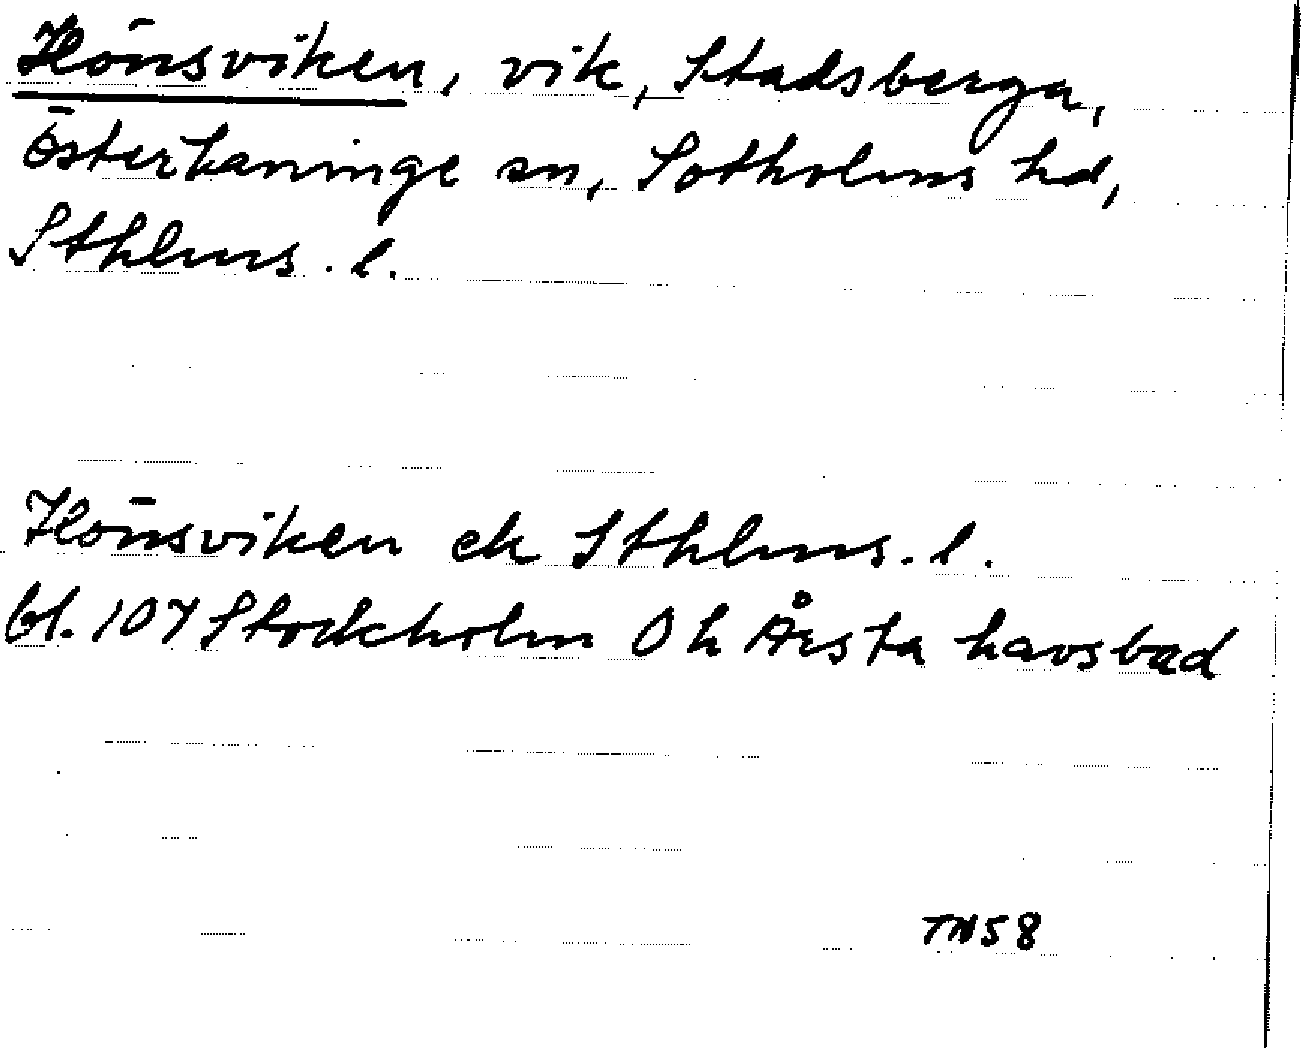 Hönsviken, vik, Stadsberga,
Österhaninge sn, Sotholms hd,
Sthlms. l.
Hönsviken ek Sthlms. l.
bl. 107 Stockholm O h Årsta havsbad
TN58